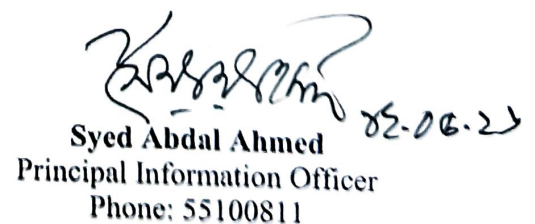 Syed Abdal Ahmed
Principal Information Officer
Phone: 55100811